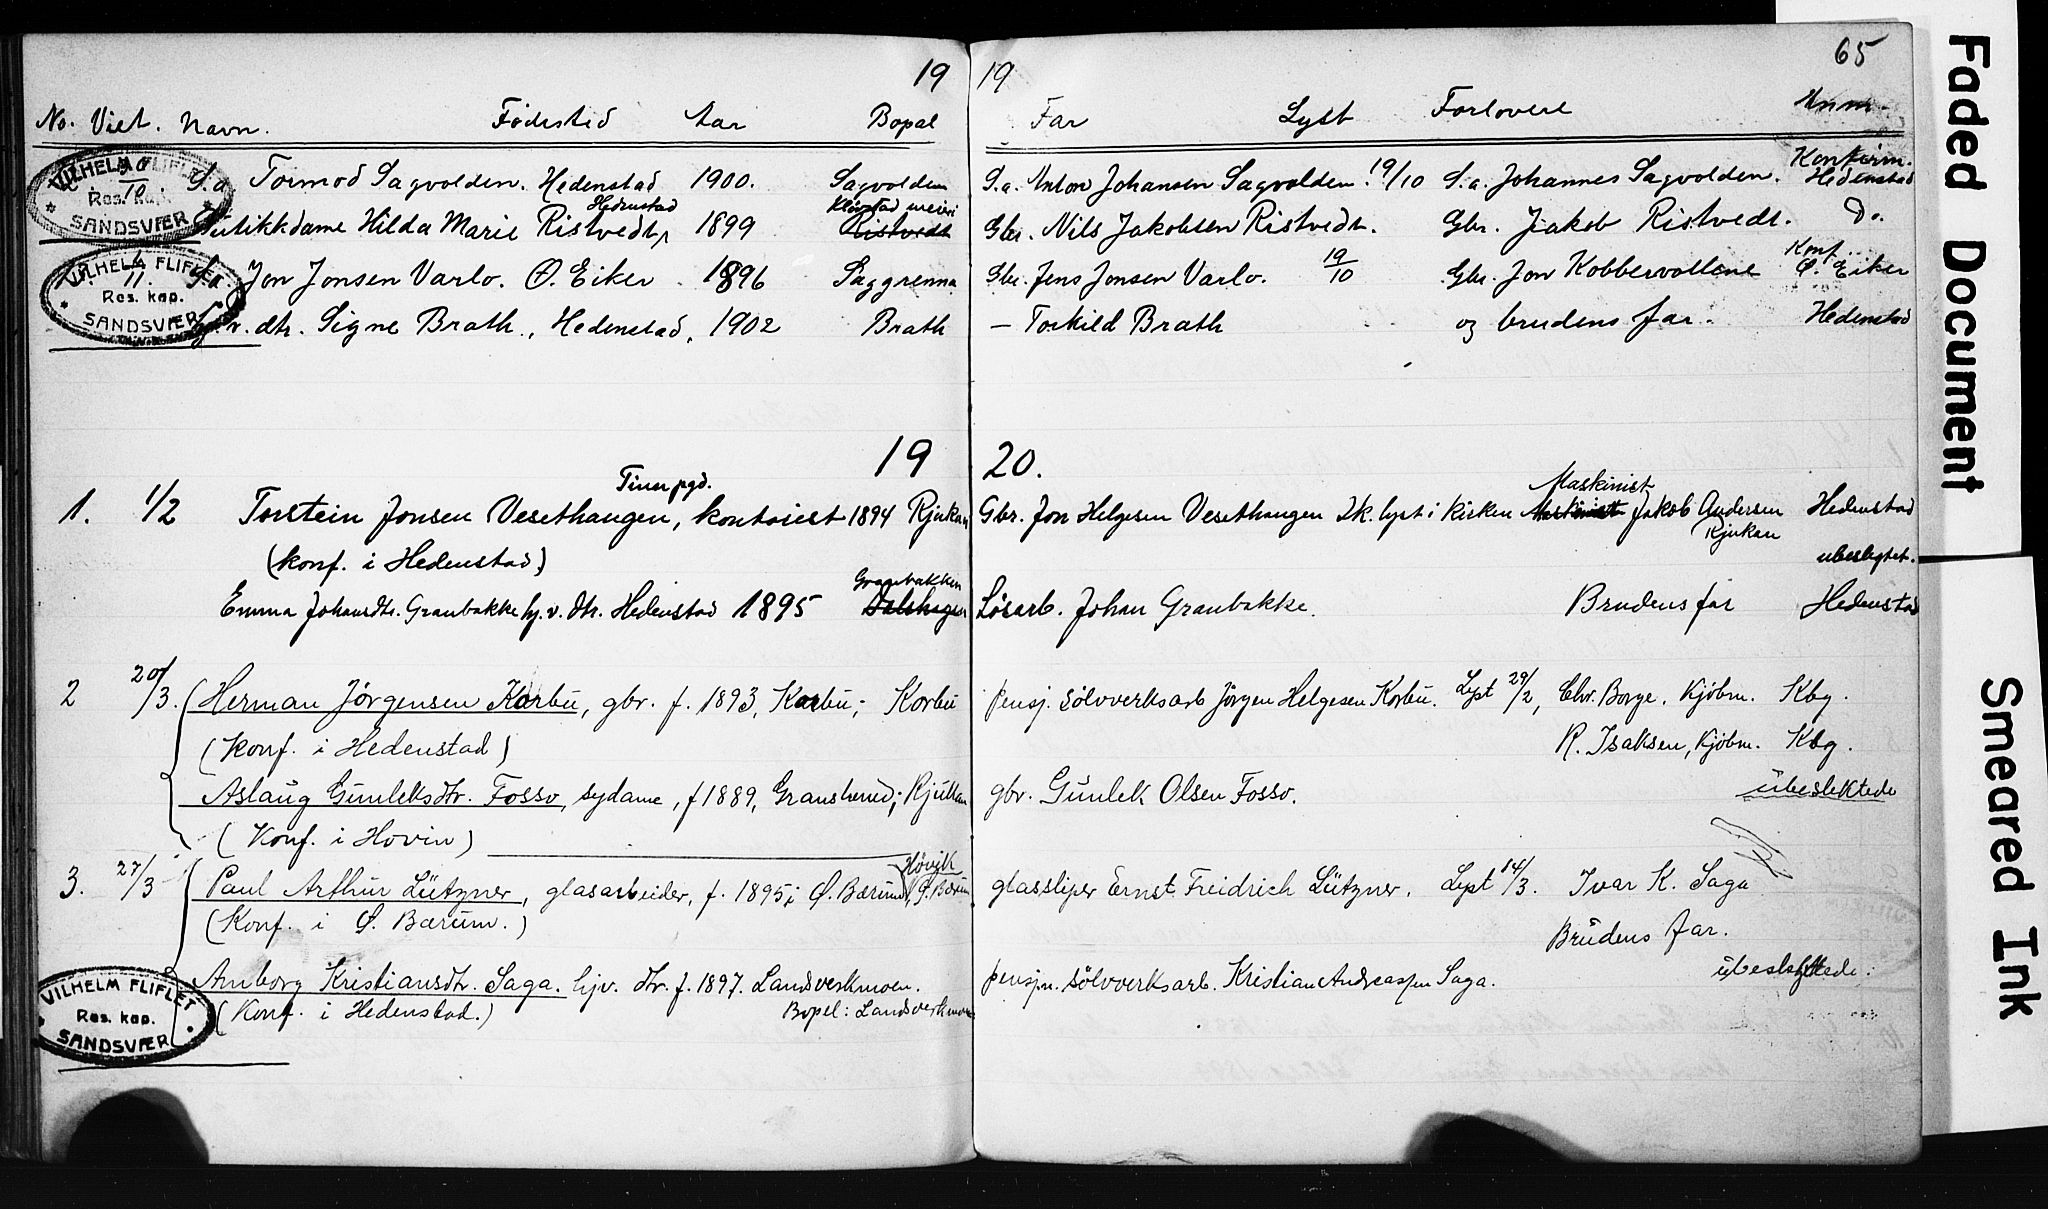 19 19 65
No. Viet. Navn. Fødested Aar Bopæl Far Lyst Forlovere Anm.
S.a. Tormod Sagvolden. Hedenstad 1900. Sagvolden S.a. Anton Johansen Sagvolden. 19/10 S.a. Johannes Sagvolden. Konfirm. Hedenstad
Butikkdame Hilda Marie Ristvedt, Hedenstad 1899 Kløvstad meieri Ristvedt Gbr. Nils Jakobsen Ristvedt. Gbr. Jakob Ristvedt. Do.
11. S.a. Jon Jonsen Varlo. Ø. Eiker 1896 Saggrenna Gbr. Jens Jonsen Varlo. 19/10 Gbr. Jon Kobbervollene Konf. Ø. Eiker
Gbr. dtr. Signe Brath, Hedenstad, 1902 Brath – Torkild Brath og brudens far. Hedenstad
VILHELM FLIFLET
Res. kap.
SANDSVÆR
VILHELM FLIFLET
Res. kap.
SANDSVÆR
19 20.
Tinn pgd. Maskinist
1. 1/2 Torstein Jonsen Vesethaugen, kontorist 1894 Rjukan Gbr. Jon Helgesen Vesethaugen 2k. lyst i kirken Jakob Andersen Hedenstad
(konf. i Hedenstad) Rjukan
ubeslegtet.
Granbakken
Emma Johansdtr. Granbakke hj.v. dtr. Hedenstad 1895 Dalshagen Løsarb. Johan Granbakke. Brudens far Hedenstad
2 20/3. Herman Jørgensen Korbu, gbr. f. 1893, Korbu; Korbu pensj. sølvverksarb Jörgen Helgesen Korbu. Lyst 29/2, Chr. Borge, Kjöbm. Kbg.
(Konf. i Hedenstad) R. Isaksen, Kjöbm. Kbg.
Aslaug Gunleksdtr. Fosso, sydame, f 1889, Gransherred; Rjukan gbr. Gunlek Olsen Fosso. ubeslektede
(Konf. i Hovin)
Høvik
3. 27/3 Paul Arthur Lützner, glasarbeider, f. 1895 i Ø. Bærum, Ø. Bærum glassliper Ernst Freidrich Lützner. Lyst 14/3. Ivar K. Saga
(Konf. i Ø. Bærum.) Brudens far.
Anborg Kristiansdtr. Saga. hjv. dtr. f. 1897. Landsverkmoen. pensjn. sølvverksarb. Kristian Andreassen Saga. ubeslektede.
(Konf. i Hedenstad.) Bopel: Landsverkmoen
VILHELM FLIFLET
Res. kap.
SANDSVÆR
Faded Document
Smeared Ink